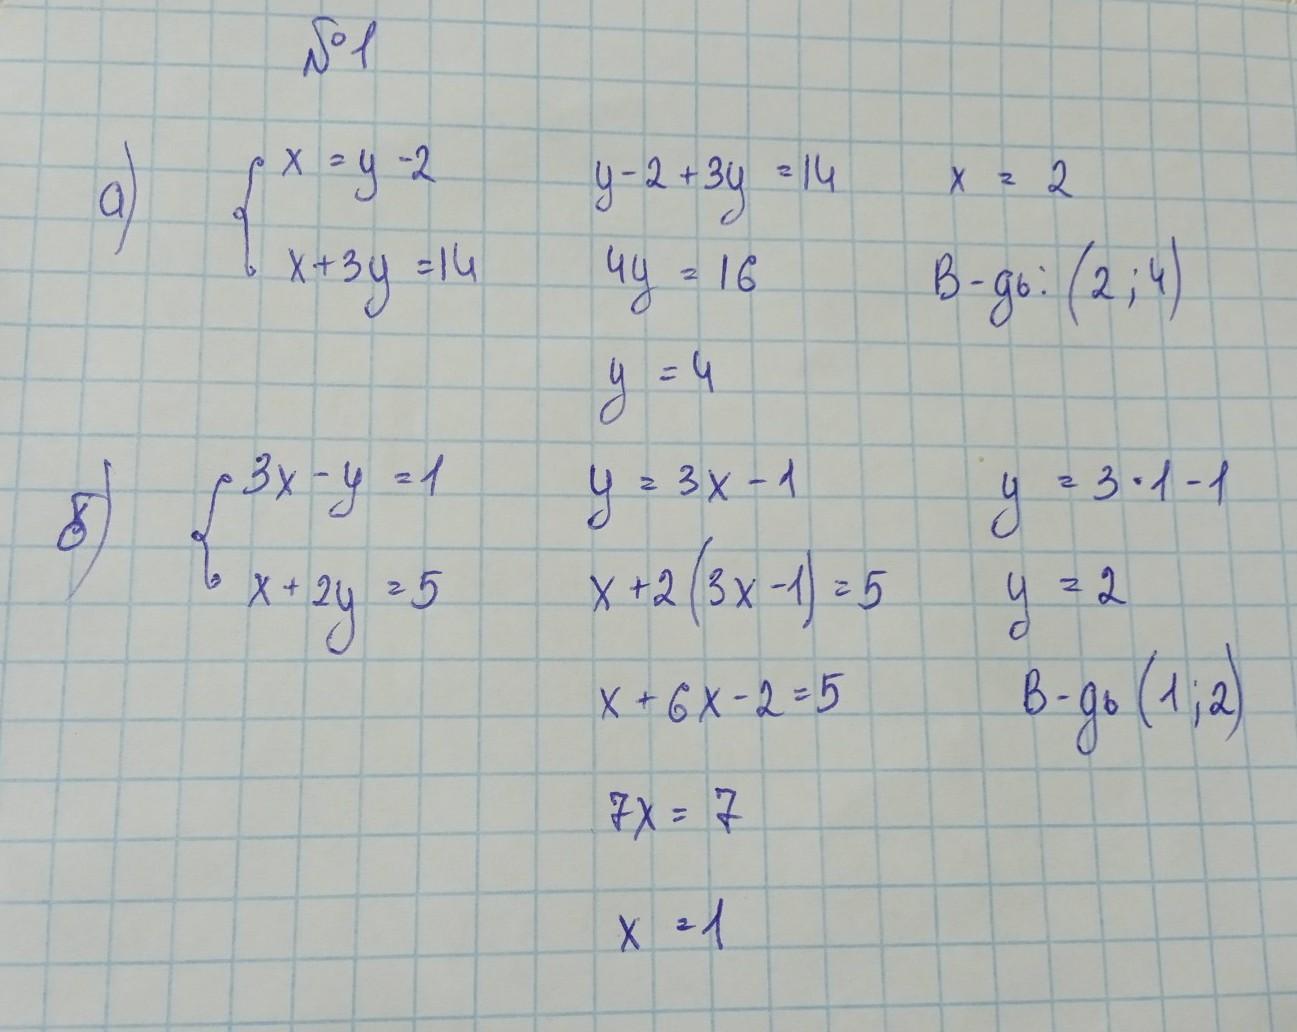 №1
а)
x = y - 2
x + 3y = 14
y - 2 + 3y = 14
4y = 16
y = 4
x = 2
В-дь: (2 ; 4)
б)
3x - y = 1
x + 2y = 5
y = 3x - 1
x + 2(3x - 1) = 5
x + 6x - 2 = 5
7x = 7
x = 1
y = 3 · 1 - 1
y = 2
В-дь (1 ; 2)